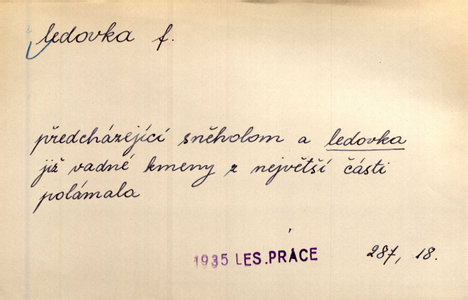 ledovka f.
předcházející sněholom a ledovka
již vadné kmeny z největší části
polámala
1935 LES. PRÁCE 287, 18.